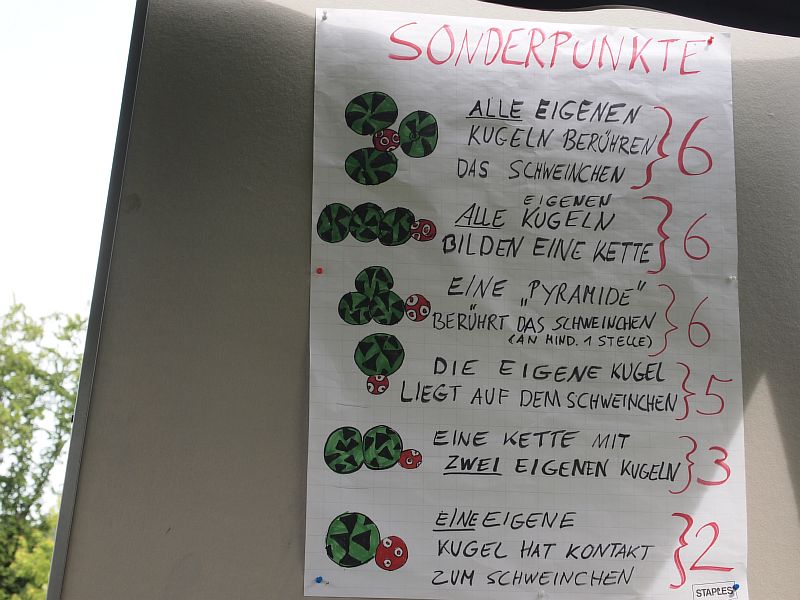 SONDERPUNKTE
ALLE EIGENEN
KUGELN BERÜHREN
DAS SCHWEINCHEN
6
EIGENEN
ALLE KUGELN
BILDEN EINE KETTE
6
EINE „PYRAMIDE"
BERÜHRT DAS SCHWEINCHEN
(AN MIND. 1 STELLE)
6
DIE EIGENE KUGEL
LIEGT AUF DEM SCHWEINCHEN
5
EINE KETTE MIT
ZWEI EIGENEN KUGELN
3
EINE EIGENE
KUGEL HAT KONTAKT
ZUM SCHWEINCHEN
2
STAPLES